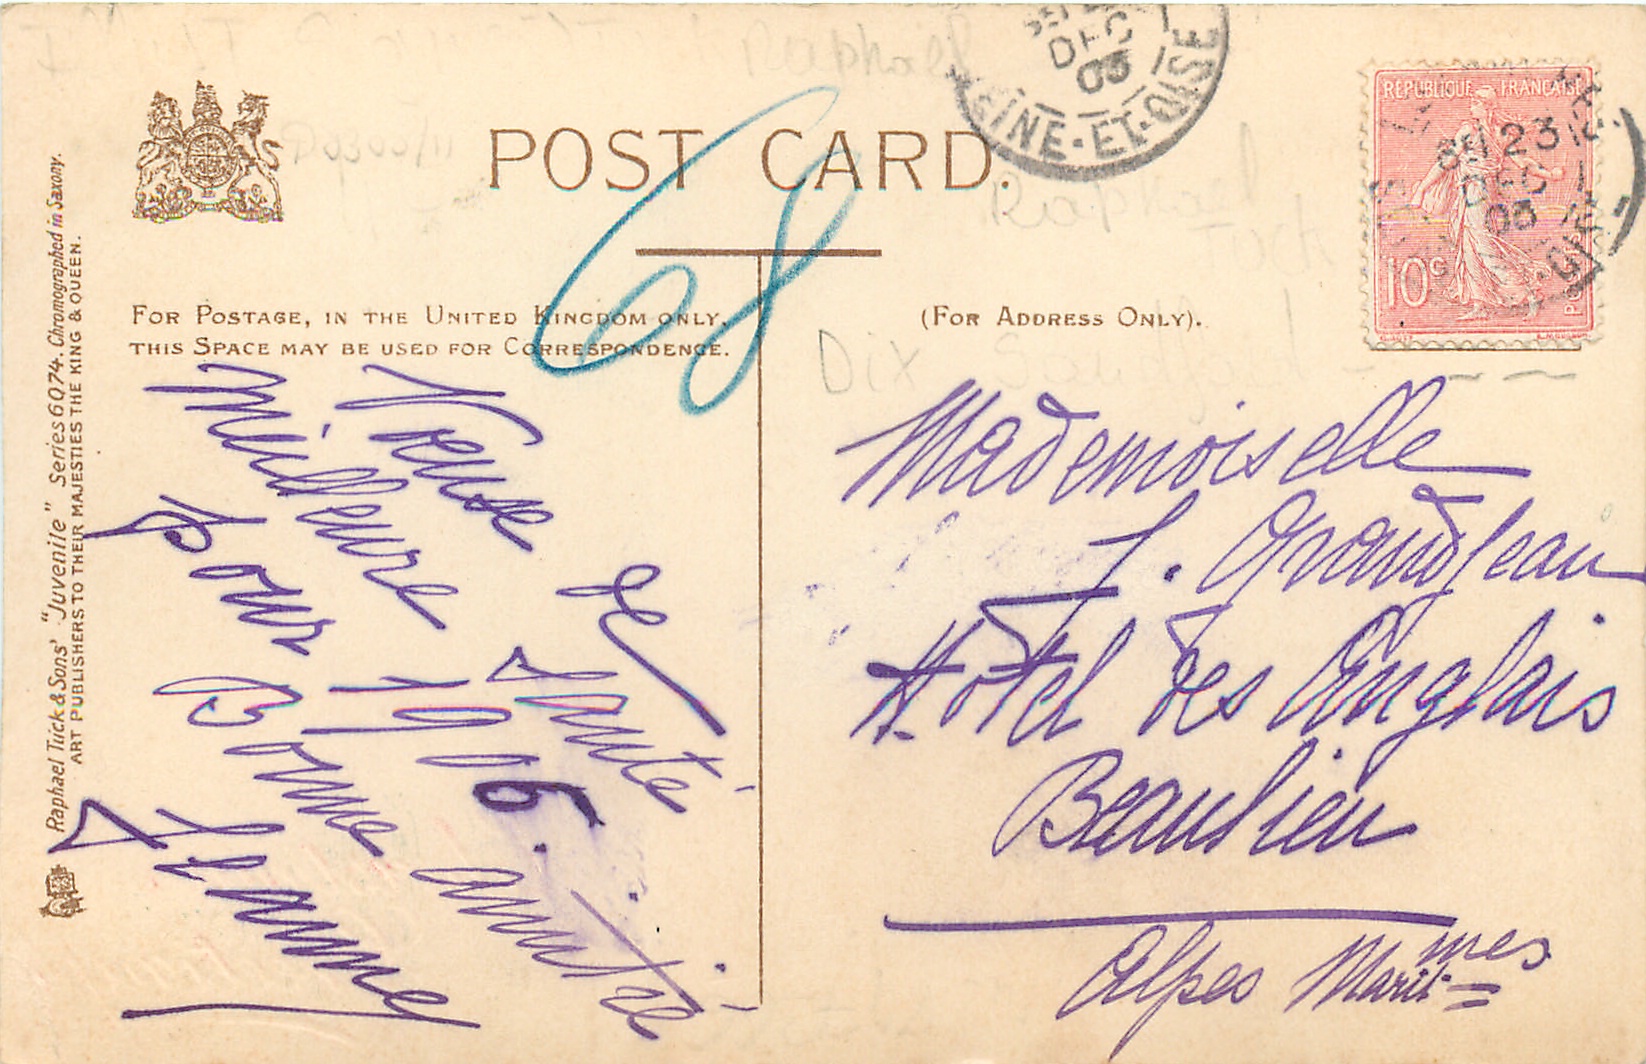 POST CARD.
FOR POSTAGE, IN THE UNITED KINGDOM ONLY,
THIS SPACE MAY BE USED FOR CORRESPONDENCE.
(FOR ADDRESS ONLY).
Raphael Tuck & Sons' "Juvenile" Series 6074. Chromographed in Saxony.
ART PUBLISHERS TO THEIR MAJESTIES THE KING & QUEEN.
68
Dix
SEINE-ET-OISE
DEC
REPUBLIQUE FRANÇAISE
10c
POSTES
23
DEC
Voeux de Santé
Meilleure
pour 1906.
Bonne amitié
Jeanne
Mademoiselle
J. Grandjean
Hotel des Anglais
Beaulieu
Alpes Maritmes